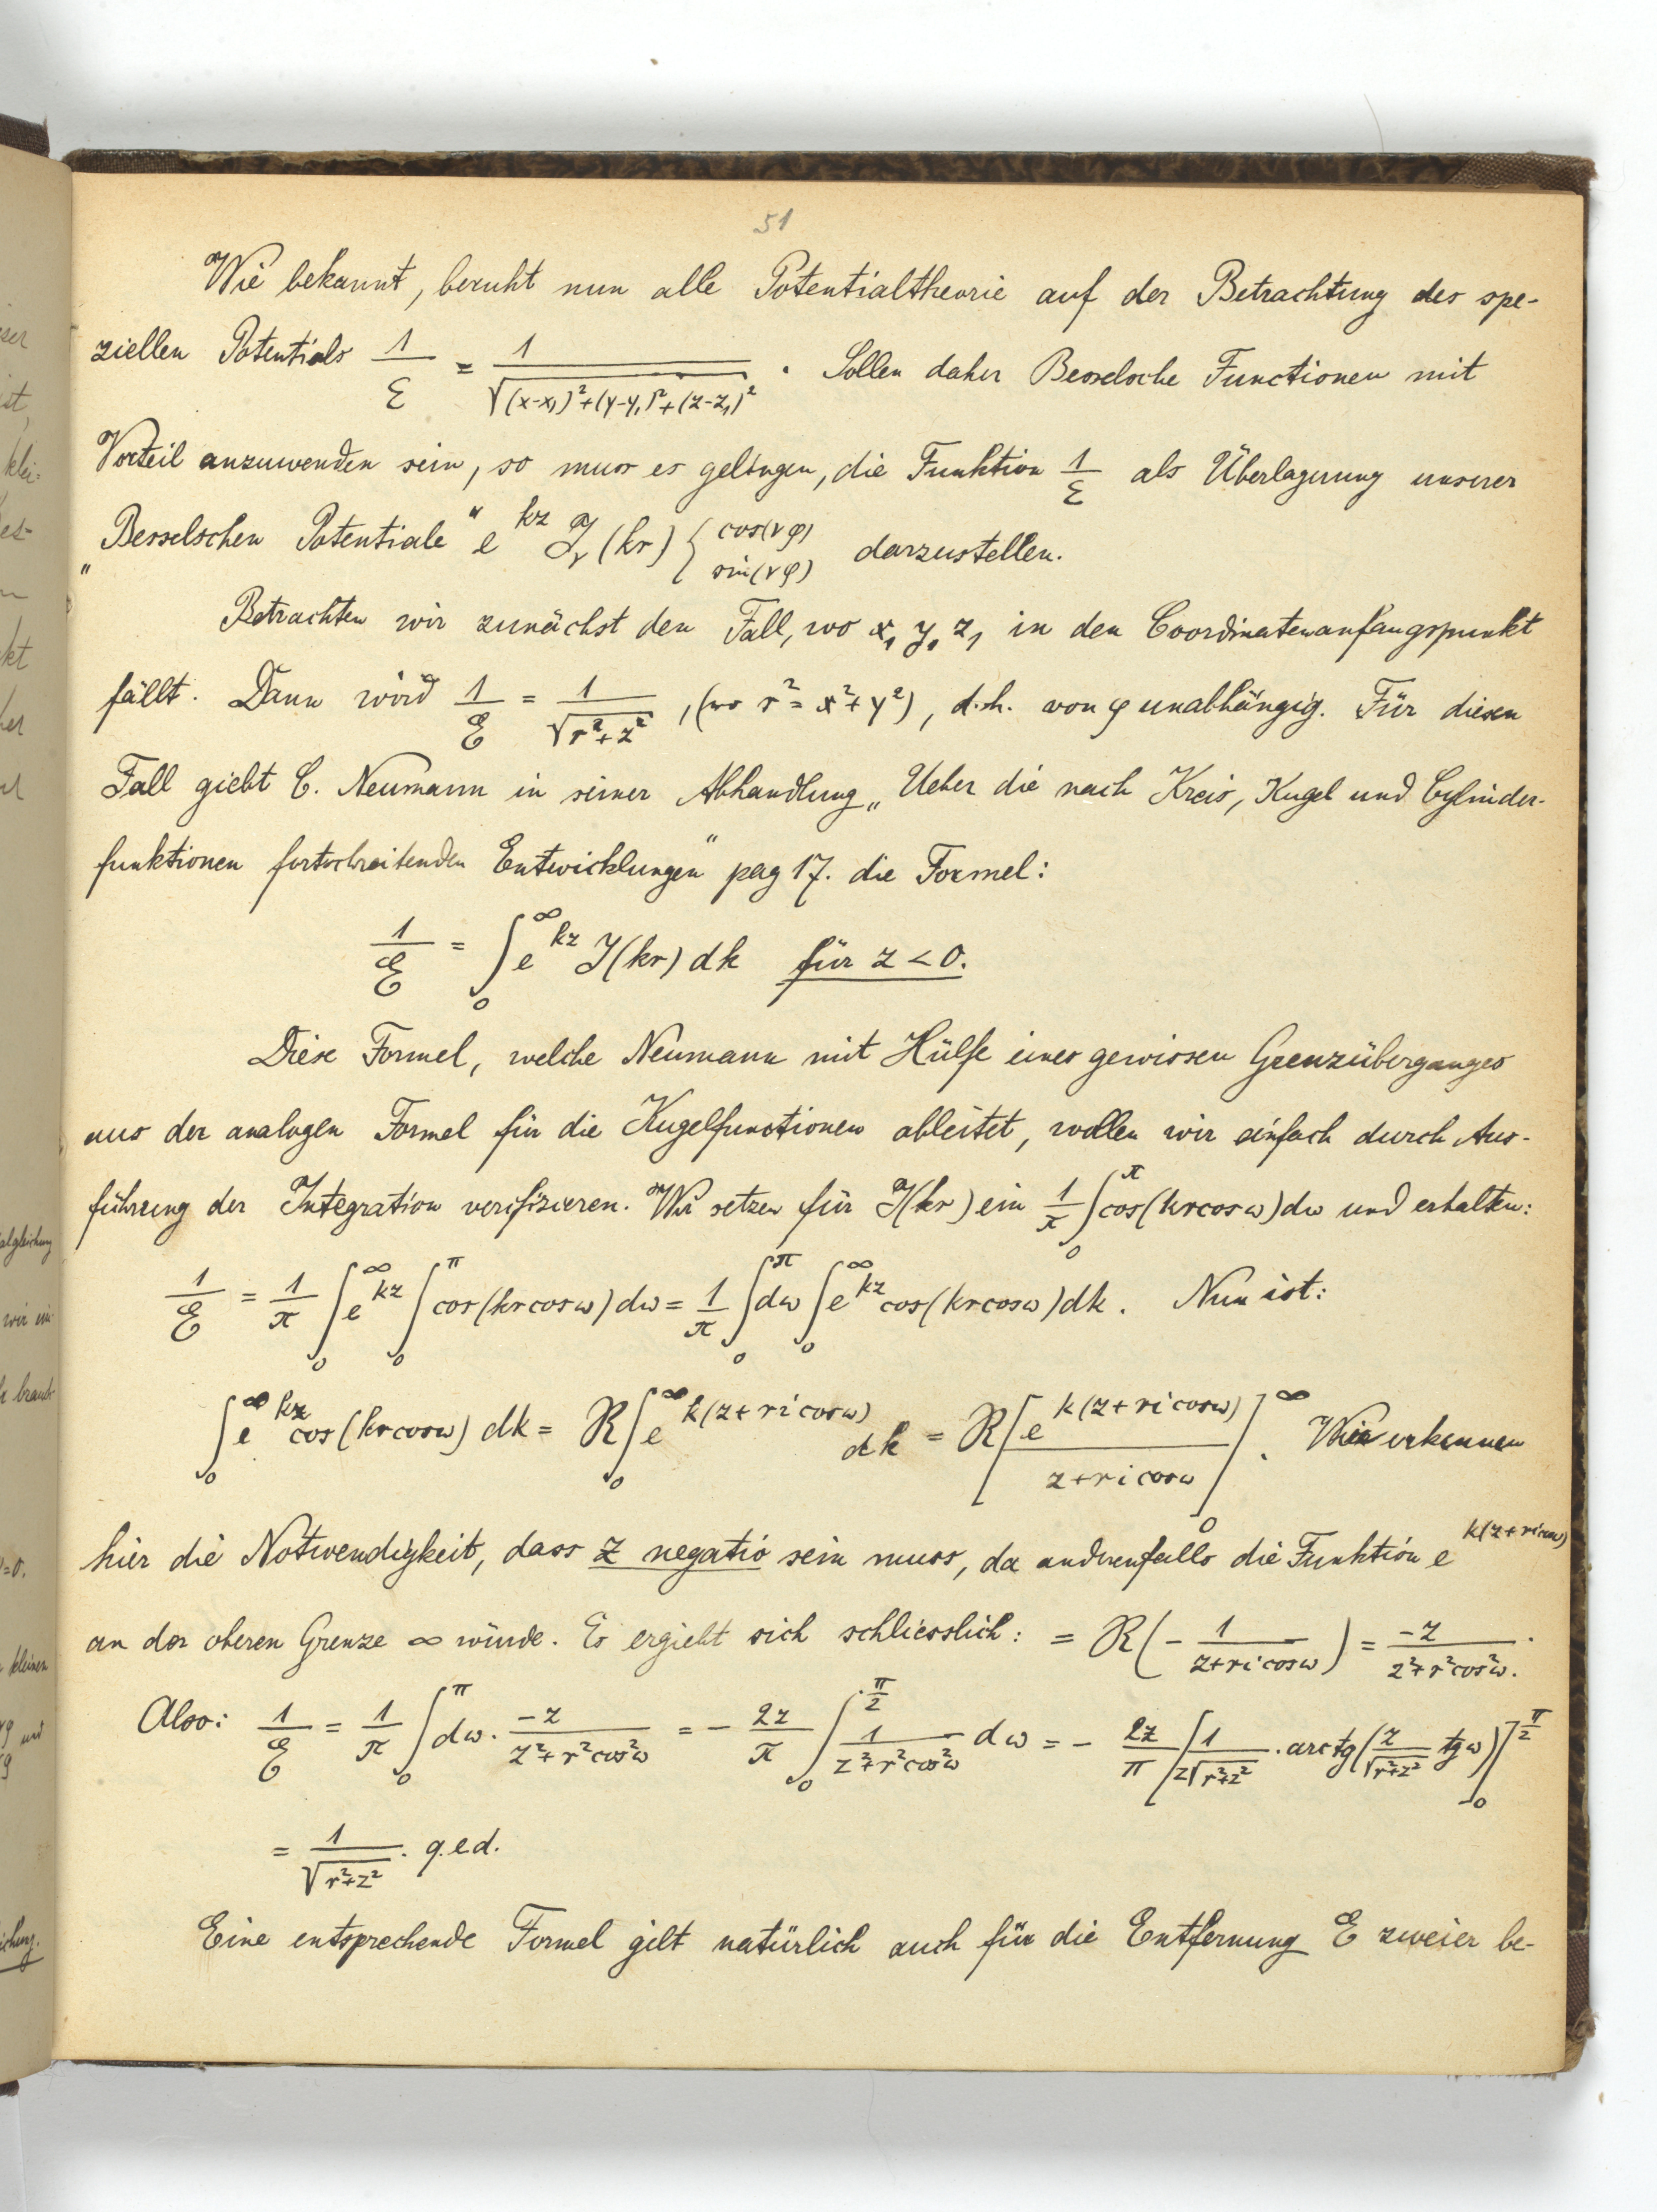 51
Wie bekannt, beruht nun alle Potentialtheorie auf der Betrachtung des spe-
ziellen Potentials 1/E = 1/√((x-x₁)²+(y-y₁)²+(z-z₁)²). Sollen daher Besselsche Functionen mit
Vorteil anzuwenden sein, so muss es gelingen, die Funktion 1/E als Überlagerung unserer
„Besselschen Potentiale“ e^{kz} J_ν(kr) { cos(νφ) sin(νφ) darzustellen.
Betrachten wir zunächst den Fall, wo x₁ y₁ z₁ in den Coordinatenanfangspunkt
fällt. Dann wird 1/E = 1/√(r²+z²), (wo r² = x²+y²), d.h. von φ unabhängig. Für diesen
Fall giebt C. Neumann in seiner Abhandlung „Ueber die nach Kreis, Kugel und Cylinder-
funktionen fortschreitenden Entwicklungen“ pag 17. die Formel:
1/E = ∫₀^∞ e^{kz} J(kr) dk für z < 0.
Diese Formel, welche Neumann mit Hülfe eines gewissen Grenzüberganges
aus der analogen Formel für die Kugelfunctionen ableitet, wollen wir einfach durch Aus-
führung der Integration verifizieren. Wir setzen für J(kr) ein 1/π ∫₀^π cos(kr cos ω) dω und erhalten:
1/E = 1/π ∫₀^∞ e^{kz} ∫₀^π cos(kr cos ω) dω = 1/π ∫₀^π dω ∫₀^∞ e^{kz} cos(kr cos ω) dk. Nun ist:
∫₀^∞ e^{kz} cos(kr cos ω) dk = R ∫₀^∞ e^{k(z+ri cos ω)} dk = R [e^{k(z+ri cos ω)}/(z+ri cos ω)]₀^∞. Wir erkennen
hier die Notwendigkeit, dass z negativ sein muss, da anderenfalls die Funktion e^{k(z+ri cos ω)}
an der oberen Grenze ∞ würde. Es ergiebt sich schliesslich: = R(- 1/(z+ri cos ω)) = -z/(z²+r² cos² ω).
Also: 1/E = 1/π ∫₀^π dω · -z/(z²+r² cos² ω) = - 2z/π ∫₀^{π/2} 1/(z²+r² cos² ω) dω = - 2z/π [1/(z√(r²+z²)) · arctg(z/√(r²+z²) tg ω)]₀^{π/2}
= 1/√(r²+z²). q.e.d.
Eine entsprechende Formel gilt natürlich auch für die Entfernung E zweier be-